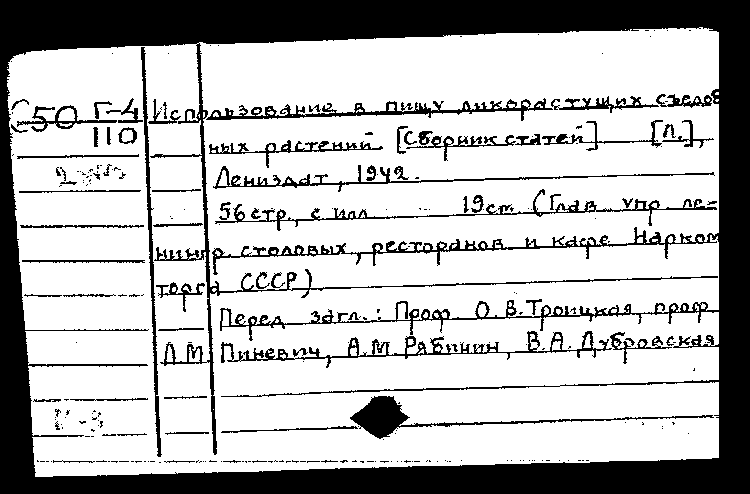 С50 Г-4 Использование в пищу дикорастущих съедоб
110
ных растений. [Сборник статей] [Л.],
Лениздат, 1942.
56 стр., с илл 19 см. (Глав упр ле-
нингр. столовых, ресторанов и кафе Нарком
торга СССР)
Перед загл.: Проф. О.В. Троицкая, проф.
Л.М. Пиневич, А.М. Рябинин, В.А. Дубровская